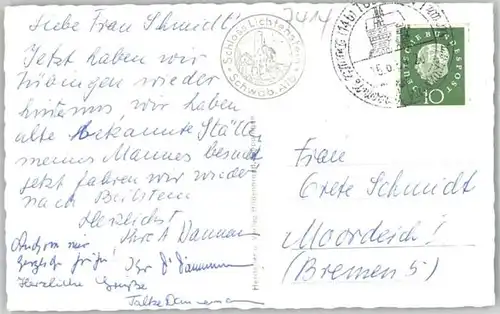 Liebe Frau Schmidt!
Jetzt haben wir
Tübingen wieder
hinter uns, wir haben
alte bekannte Stätte
meines Mannes besucht
jetzt fahren wir wieder
nach Beilstein
Herzlichst
Ihre A Dannemann
Auch von mir
herzliche Grüße!
Ihr D. Dannemann
Herzliche Grüße
Dannemann
3414
Schloss Lichtenstein
Schwäb. Alb
DEUTSCHE BUNDESPOST
10
Frau
Grete Schmidt
Moordeich!
(Bremen 5)